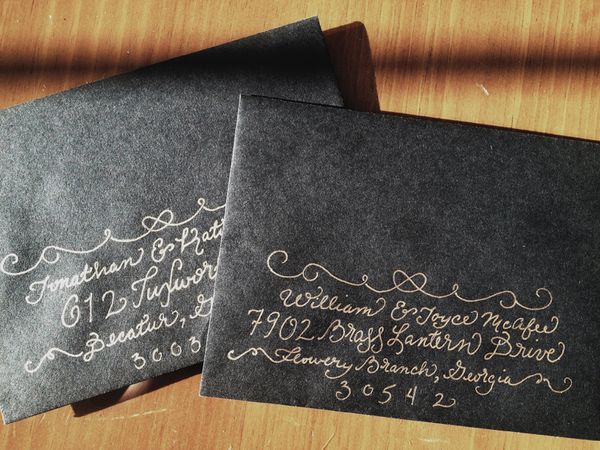 Jonathan &
612
Decatur,
3003
William & Joyce McAfee
7902 Brass Lantern Drive
Flowery Branch, Georgia
30542